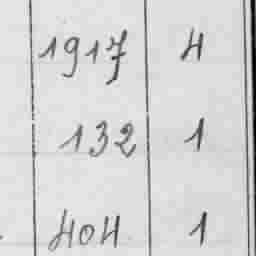 1917 4
132 1
404 1